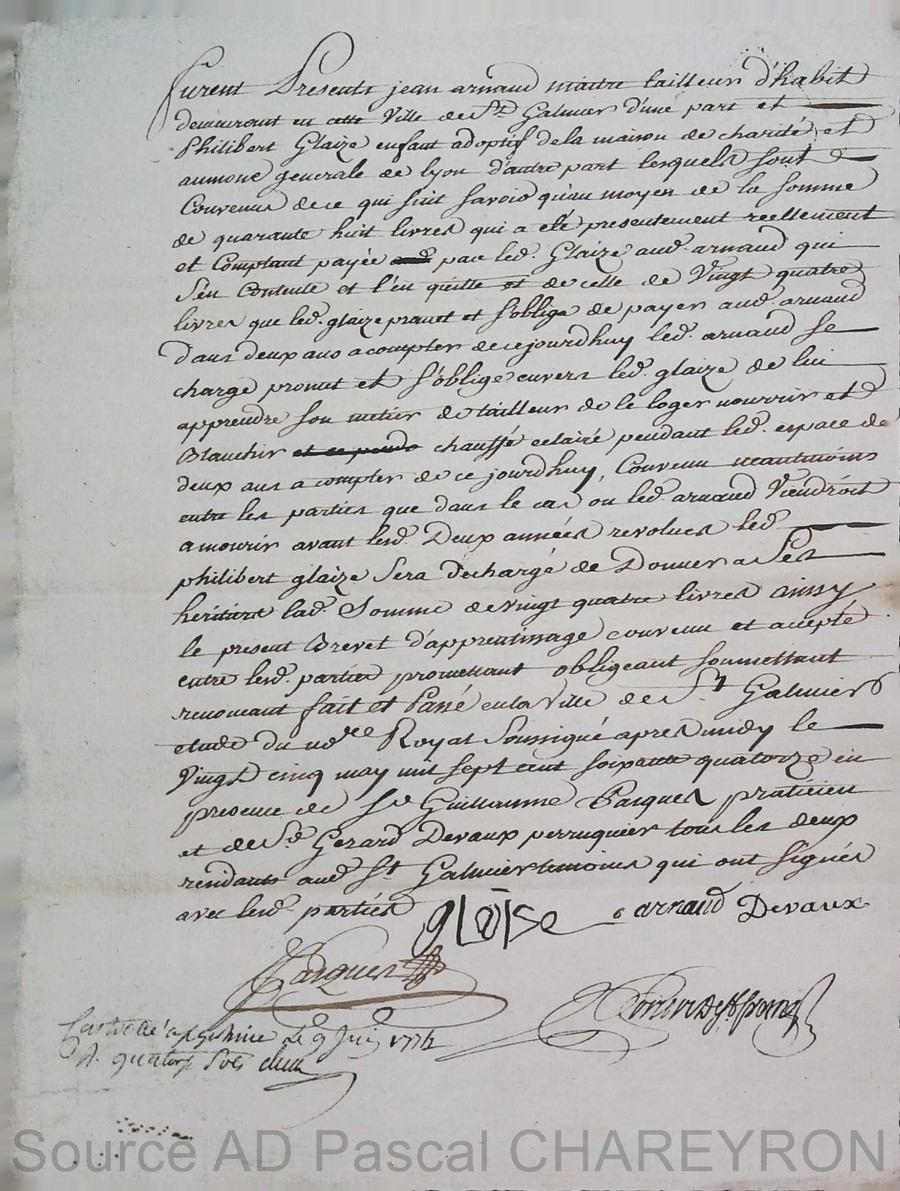 furent Presents jean arnaud maitre tailleur d'habit
demeurant en cette Ville de St Galmier d'une part et
Philibert Glaize enfant adoptif de la maison de charité et
aumone generale de lyon d'autre part lesquels sont
Convenus de ce qui suit savoir qu'au moyen de la somme
de quarante huit livres qui a eté presentement reellement
et Comptant payée par led. Glaize aud. arnaud qui
s'en Contente et l'en quitte et de celle de Vingt quatre
livres que led. glaize promet et s'oblige de payer aud. arnaud
dans deux ans a compter de ce jourdhuy led. arnaud se
charge promet et s'oblige envers led. glaize de lui
apprendre son metier de tailleur de le loger nourrir et
Blanchir chauffé eclairé pendant led. espace de
deux ans a compter de ce jourdhuy, Convenu neantmoins
entre les parties que dans le cas ou led. arnaud Viendroit
a mourir avant lesd. Deux années revolues led.
philibert glaize sera dechargé de Donner a ses
heritiers lad. Somme de vingt quatre livres ainsy
le present Brevet d'apprentissage convenu et accepté
entre lesd. parties promettant obligeant soumettant
renoncant fait et Passé en la Ville de St. Galmier
etude du nore Royal Soussigné apres midy le
Vingt cinq may mil sept cent soixante quatorze en
presence de Sr Guillaume Pasquet praticien
et de Sr. Gerard Devaux perruquier tous les deux
residants aud. St Galmier temoins qui ont signés
avec lesd. parties
glaise arnaud Devaux
Pasquet
le 9 Juin 1774
Source AD Pascal CHAREYRON